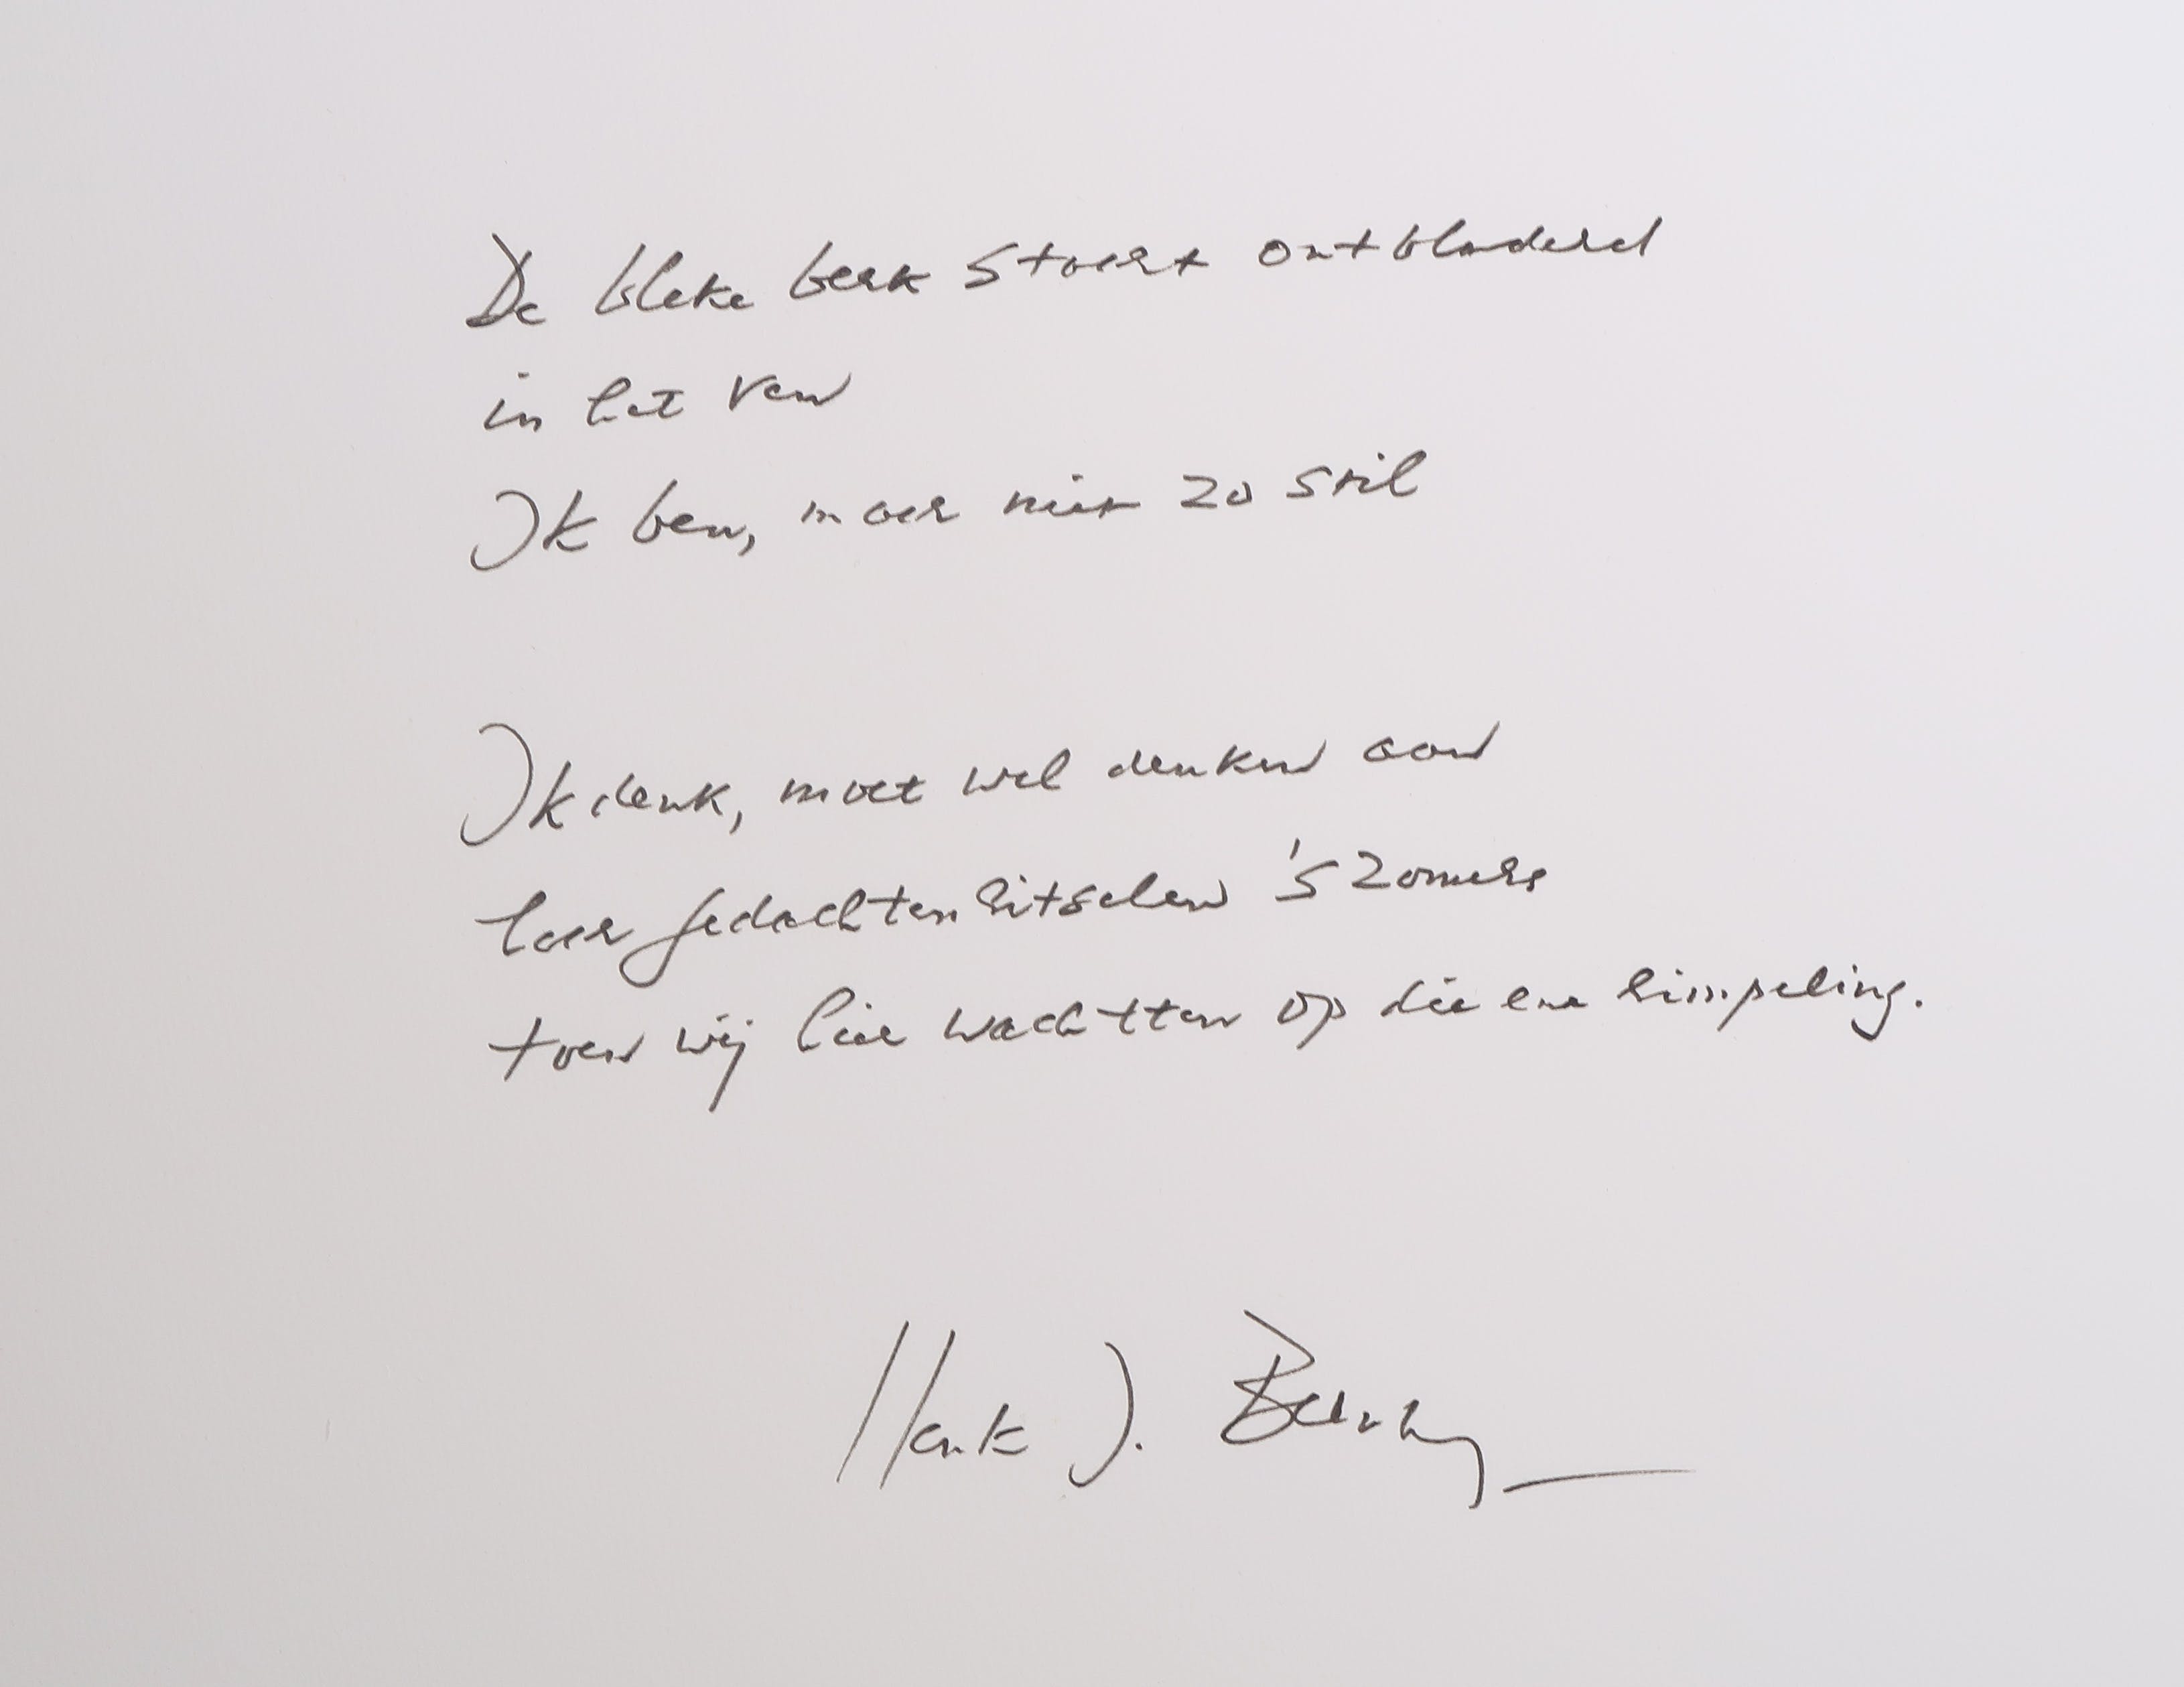 De bleke berk staart ontbladerd
in het ven
Ik ben, maar niet zo stil
Ik denk, moet wel denken aan
haar gedachtenritselen 's zomers
toen wij hier wachtten op die ene rimpeling.
Henk J.